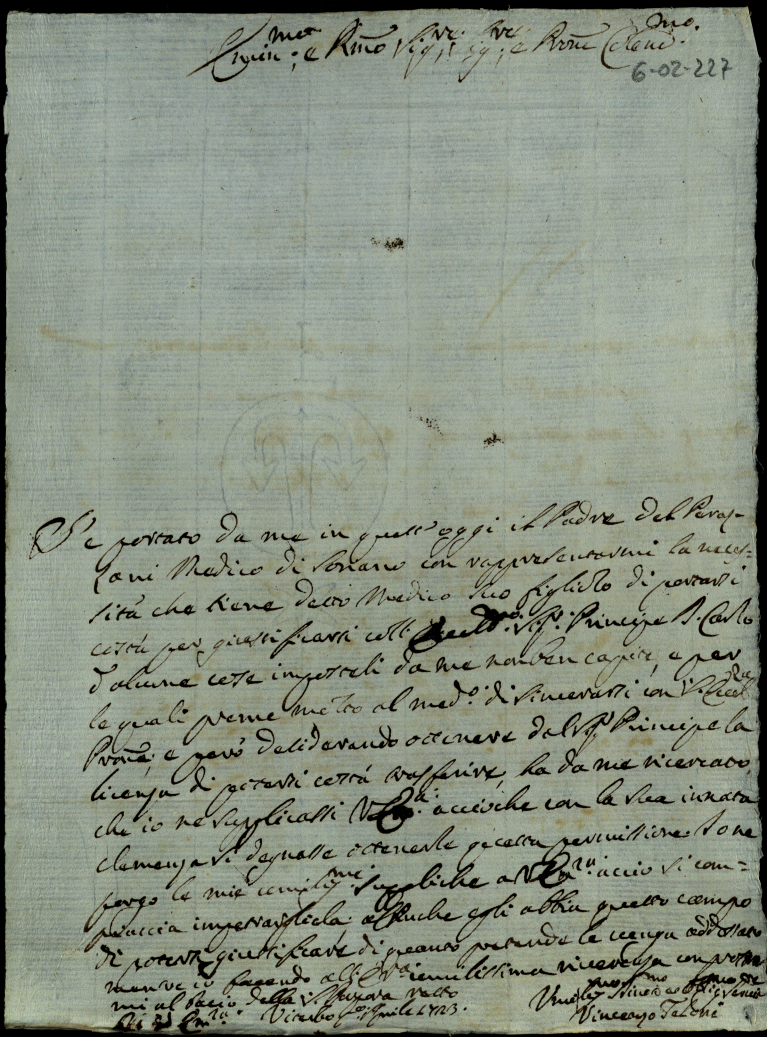 Emin.mo e Rmo Sig.re Sig.re e Prone Colend.mo
6-02-227
S'è portato da me in quest'oggi il Padre del Peraz-
zani Medico di Soriano con rappresentarmi la neces-
sità che tiene detto Medico suo figliolo di portarsi
costà per giustificarsi coll' Sig.r Principe D. Carlo
d'alcune cose impostoli da me non ben capite, e per
le quali preme molto al med.o di sincerarsi con
Prone, e però desiderando ottenere dal Sig.r Principe la
licenza di potersi costà trasferire, ha da me ricercato
che io ne supplicassi V. Em.a acciòche con la sua innata
clemenza si degnasse ottenerle questa permissione. Io ne
porgo le mie umiliss.me suppliche a V. Em.za acciò si com=
piaccia impetrargliela affinche egli abbia questo campo
di potersi giustificare di quanto pretende le venga addossato
mentre io facendo all' E.V. umilissima riverenza con
mi al bacio della S. Porpora resto
Di V. Em.za Viterbo p.o Aprile 1723.
Vincenzo Taloni